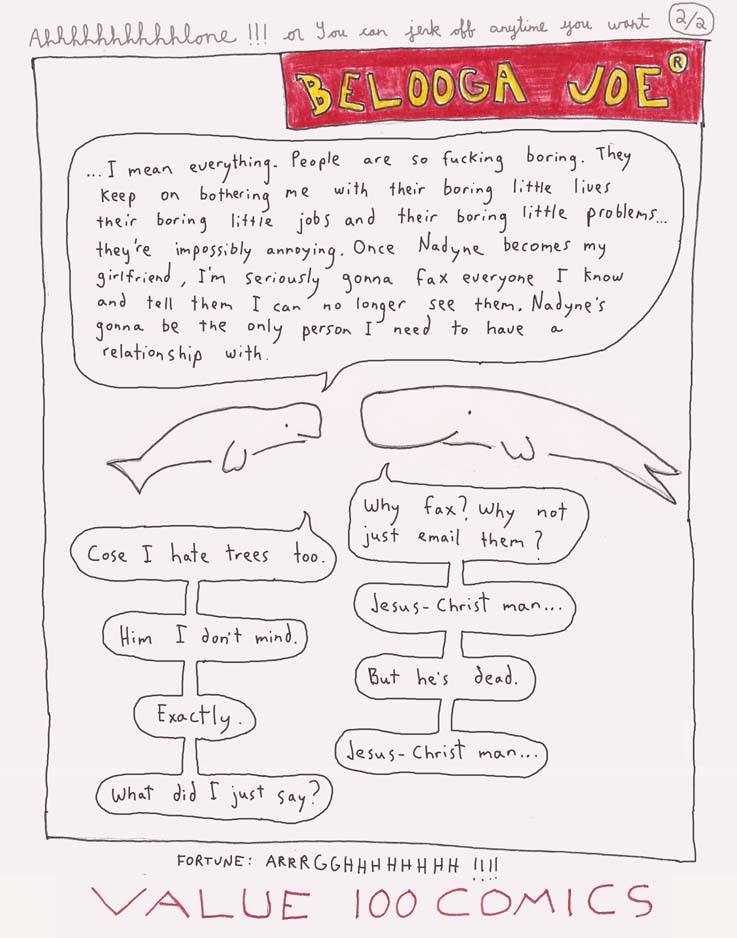 Ahhhhhhhhhhlone !!! or You can jerk off anytime you want 2/2
BELOOGA JOE ®
...I mean everything. People are so fucking boring. They
keep on bothering me with their boring little lives
their boring little jobs and their boring little problems...
they're impossibly annoying. Once Nadyne becomes my
girlfriend, I'm seriously gonna fax everyone I know
and tell them I can no longer see them. Nadyne's
gonna be the only person I need to have a
relationship with.
Why fax? Why not
just email them?
Cose I hate trees too.
Jesus-Christ man...
Him I don't mind.
But he's dead.
Exactly.
Jesus-Christ man...
What did I just say?
FORTUNE: ARRRGGHHHHHHHH !!!!
VALUE 100 COMICS